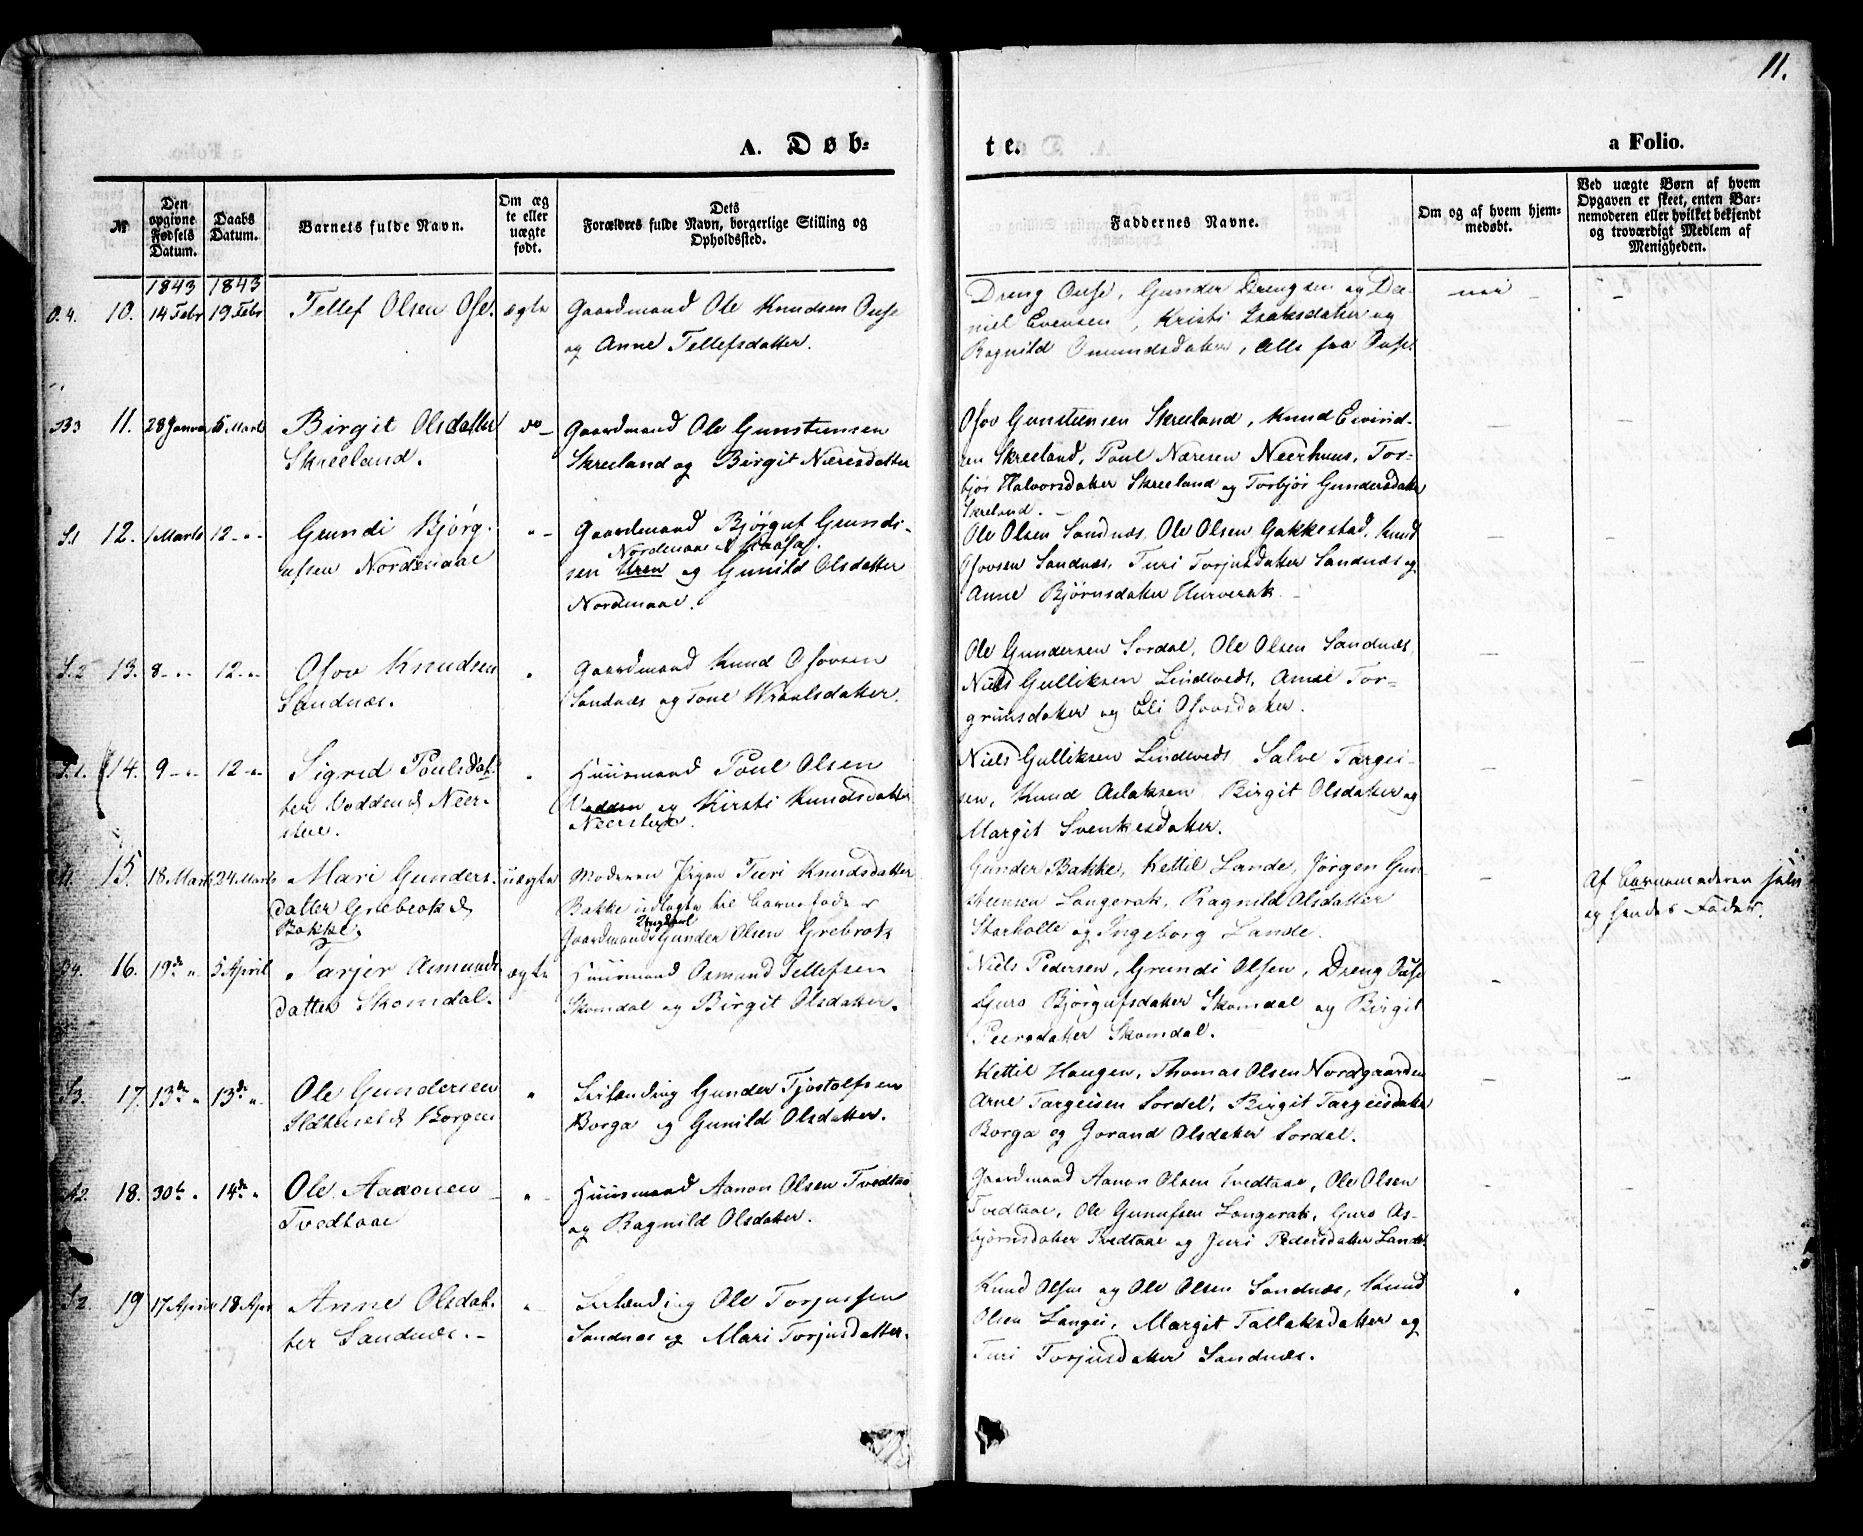 11.
A. Døb-
te.
a Folio.
№
Den opgivne Fødsels Datum.
Daabs Datum.
Barnets fulde Navn.
Om ægte eller uægte født.
Dets Forældres fulde Navn, borgerlige Stilling og Opholdssted.
Faddernes Navne.
Om og af hvem hjemmedøbt.
Ved uægte Børn af hvem Opgaven er skeet, enten Barnemoderen eller hvilket bekjendt og troværdigt Medlem af Menigheden.
1843 1843
O.4. 10. 14 Febr 19 Febr Tellef Olsen Ose. ægte Gaardmand Ole Knudsen Ouse
og Anne Tellefsdatter.
Dreng Ouse, Gunder Drengsen og Da-
niel Evensen, Kristi Isaksdatter og
Ragnild Omundsdatter, alle fra Ouse
nei -
B3 11. 28 Janua 5 Marts Birgit Olsdatter do - Gaardmand Ole Gunstensen
Skreeland. Skreeland og Birgit Næresdatter
Osov Gunstensen Skreeland, Knud Eivind-
sen Skreeland, Poul Næresen Neerhuus, Tor-
bjør Halvorsdatter Skreeland og Torbjør Gundersdatter
Skreland. -
S.1 12. 1 Marts 12 - " - Grundi Bjørg- " - Gaardmand Bjørguf Grundi-
ufsen Nordenaae Nordenaae
sen Uren og Gunild Olsdatter
Nordenaae.
Ole Olsen Sandnæs, Ole Olsen Gakkestad, Knud
Osovsen Sandnæs, Turi Torjusdatter Sandnæs og
Anne Bjørnsdatter Hurverak -
S.2 13. 8 - " - 12 - " - Osov Knudsen " Gaardmand Knud Osovsen
Sandnæs. Sandnæs og Tone Wraalsdatter.
Ole Gundersen Sordal, Ole Olsen Sandnæs,
Niels Gulliksen Lindtveds, Anne Tor-
grimsdatter og Eli Osovsdatter.
14. 9 - " - 12 - " - Sigrid Poulsdat- " Huusmand Poul Olsen
ter Vodden & Neer- Vodden og Kirsti Knudsdatter
stue. Neerstue.
Niels Gulliksen Lindtveds, Salve Targei-
sen, Knud Aslaksen, Birgit Olsdatter og
Margit Svenkesdatter.
15. 18 Marts 24 Marts Mari Gunders- uægte Moderen Pigen Turi Knudsdatter
datter Grebrok & Bakke udlagte til Barnefader
Bakke. Ungkarl
Gaardmand Gunder Olsen Grebrok
Gunder Bakke, Kettil Lande, Jørgen Gun-
stensen Langerak, Ragnild Olsdatter
Starholle og Ingeborg Lande.
Af Barnemoderen selv
og hendes Fader.
O4. 16. 19de " 5 April Tarjer Asmunds- ægte Huusmand Osmund Tellefsen
datter Skomdal. Skomdal og Birgit Olsdatter.
Niels Pedersen, Grundi Olsen, Dreng Ouse
Guro Bjørgufsdatter Skomdal og Birgit
Peersdatter Skomdal.
S3. 17. 13de " 13de " Ole Gundersen " Selænding Gunder Tjostolfsen
Ildhuset & Borgen Borga og Gunild Olsdatter.
Kettil Haugen, Thomas Olsen Nordgaarden
Arne Targeisen Sordel, Birgit Targeisdatter
Borga og Jorand Olsdatter Sordal.
A2. 18. 30te " 14de " Ole Aanonsen " - Huusmand Aanon Olsen Tvedtaae
Tvedtaae og Ragnild Olsdatter.
Gaardmand Aanon Olsen Tvedtaae, Ole Olsen
Tvedtaae, Ole Gunufsen Langerak, Guro As-
bjørnsdatter Tvedtaae og Juri Pedersdatter Lande
S.2. 19 17 April 18 Apr Anne Olsdat- " Selænding Ole Torjussen
ter Sandnæs. - Sandnæs og Mari Torjusdatter.
Knud Olsen og Ole Olsen Sandnæs, Knud
Olsen Langei, Margit Tallaksdatter og
Turi Torjusdatter Sandnæs.